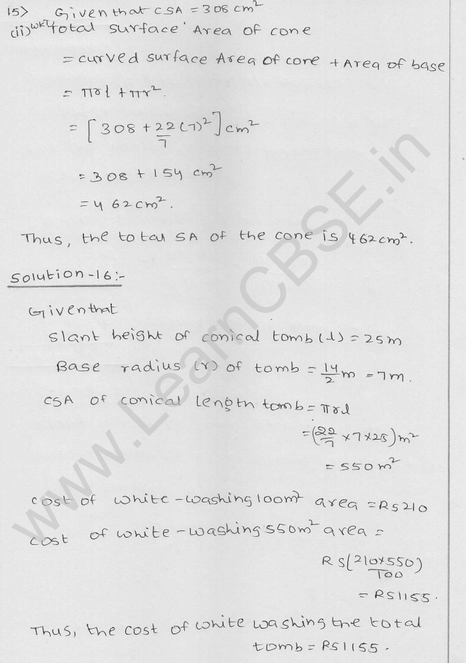 15> Given that CSA = 308 cm²
(ii) WKT Total surface Area of cone
= curved surface Area of cone + Area of base
= πrl + πr²
= [308 + 22/7 (7)²] cm²
= 308 + 154 cm²
= 462 cm².
Thus, the total SA of the cone is 462 cm².
Solution-16:-
Given that
Slant height of conical tomb (l) = 25m
Base radius (r) of tomb = 14/2 m = 7m.
CSA of conical length tomb = πrl
= (22/7 × 7 × 25) m²
= 550 m²
cost of white-washing 100m² area = RS 210
cost of white-washing 550m² area =
RS (210×550)/100
= RS 1155.
Thus, the cost of white washing the total
tomb = RS 1155.
www.LearnCBSE.in